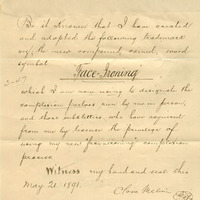 Be it known that I have created
and adopted the following trademark
or, the new compound, coined, word
symbol
"Face-Ironing"
which I am now using to designate the
complexion process used by me in person,
and those substituting who have acquired
from me by license the privilege of
using my new "face ironing" complexion
process
Witness my hand and seal this
May 21. 1891.
Clara